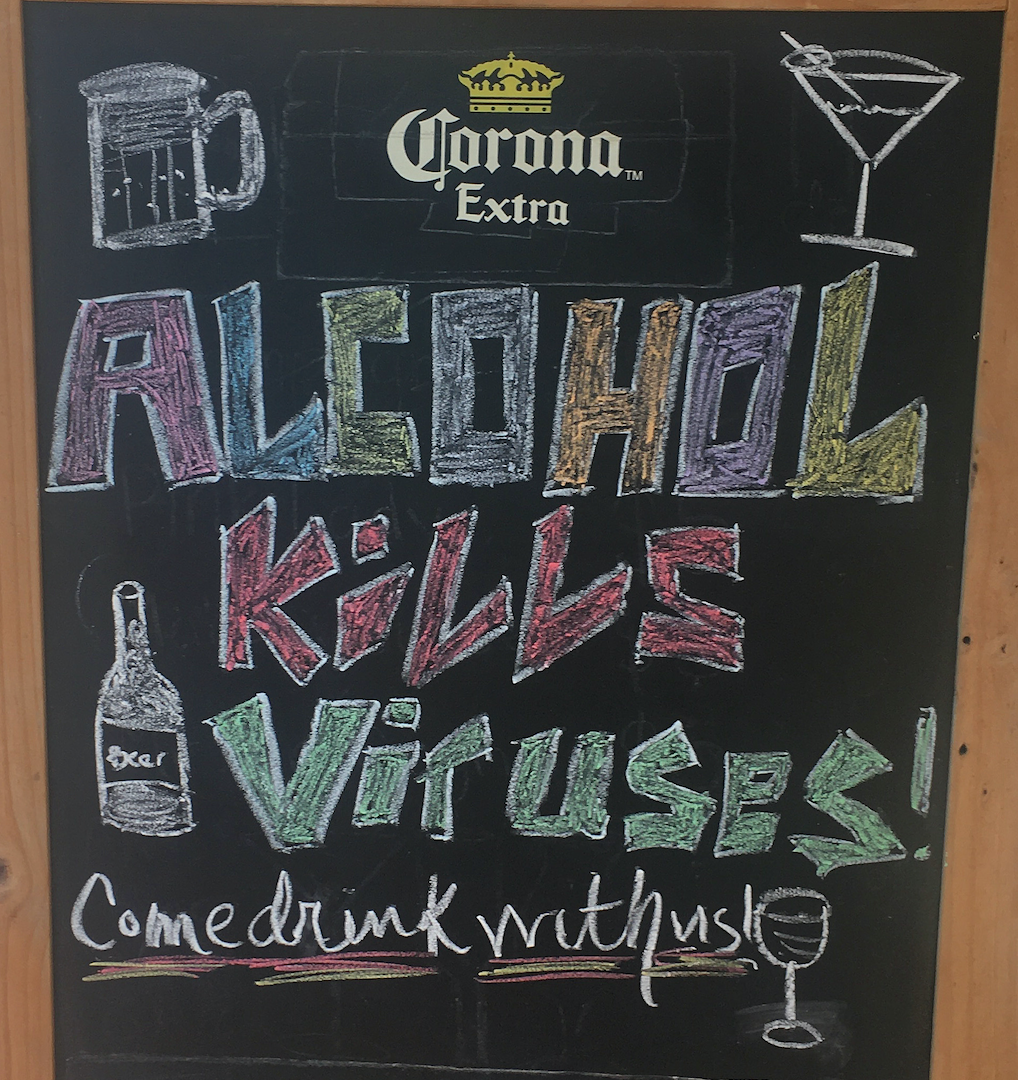 Corona™
Extra
ALCOHOL
KiLLS
Beer
ViruSeS!
Come drink with us!